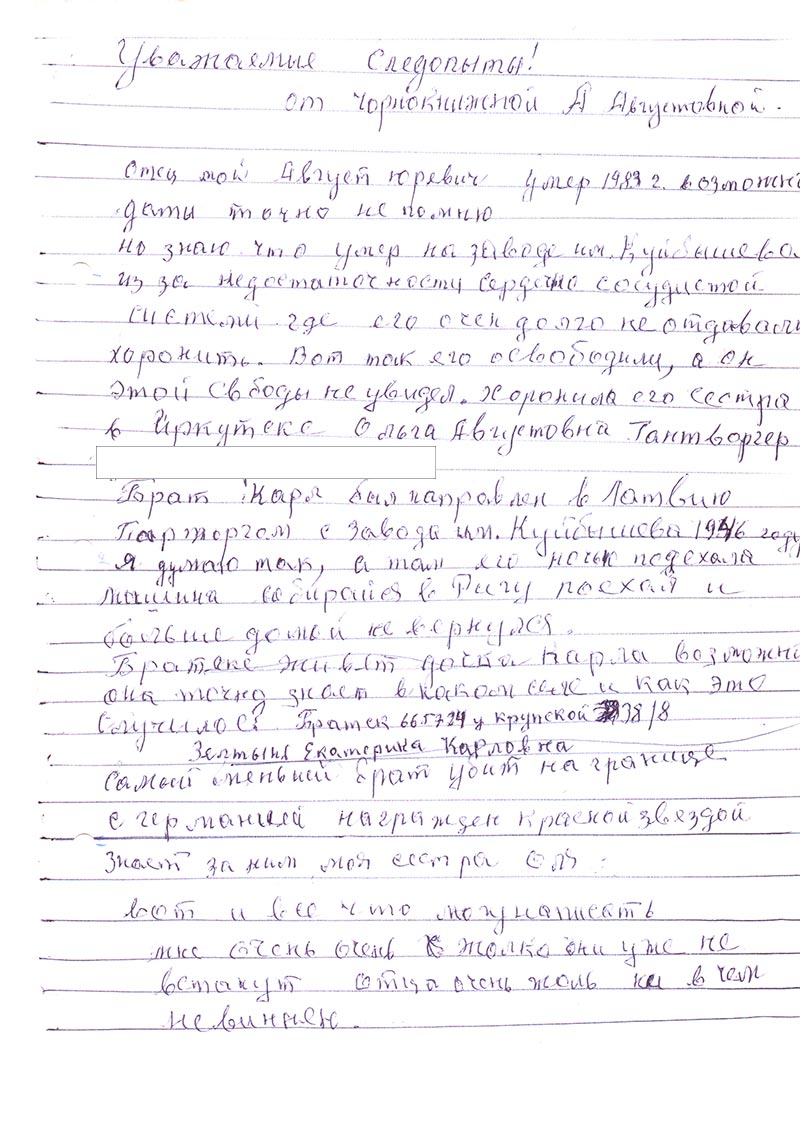 Уважаемые Следопыты!
от Чорнокнижной А Августовной.
Отец мой Август Юревич умер 1983 г. возможно
даты точно не помню
но знаю что умер на заводе им. Куйбышева
из за недостаточности сердечно сосудистой
системы где его очен долго не отдавали
хоронить. Вот так его освободили, а он
этой Свбоды не увидел. Хоронила его сестра
в Иркутске Ольга Августовна Тантворгер
Брат Карл был направлен в Латвию
Парторгом с завода им. Куйбышева 1946 году
я думаю так, а там его ночью подехала
машина собирайся в Ригу поехал и
больше домой не вернулся.
Братске живёт дочка Карла возможно
она точно знает в каком селе и как это
Случилось Братск 665724 у Крупской 38/8
Зелтыня Екатерина Карловна
Самый меньший брат убит на границе
с германией награжден Красной звездой
Знает за ним моя сестра Оля.
вот и все что могу написать
мне очень очень жолко они уже не
встанут отца очень жоль ни в чем
не виннен.